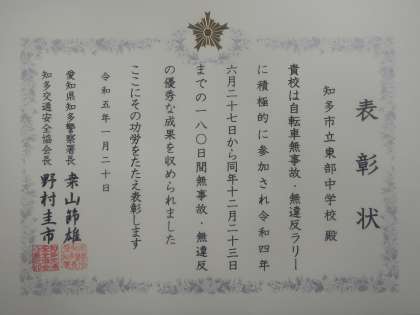 表彰状
知多市立東部中学校 殿
貴校は自転車無事故・無違反ラリー
に積極的に参加され令和四年
六月二十七日から同年十二月二十三日
までの一八〇日間無事故・無違反
の優秀な成果を収められました
ここにその功労をたたえ表彰します
令和五年一月二十日
愛知県知多警察署長 桒山節雄
知多交通安全協会長 野村圭市